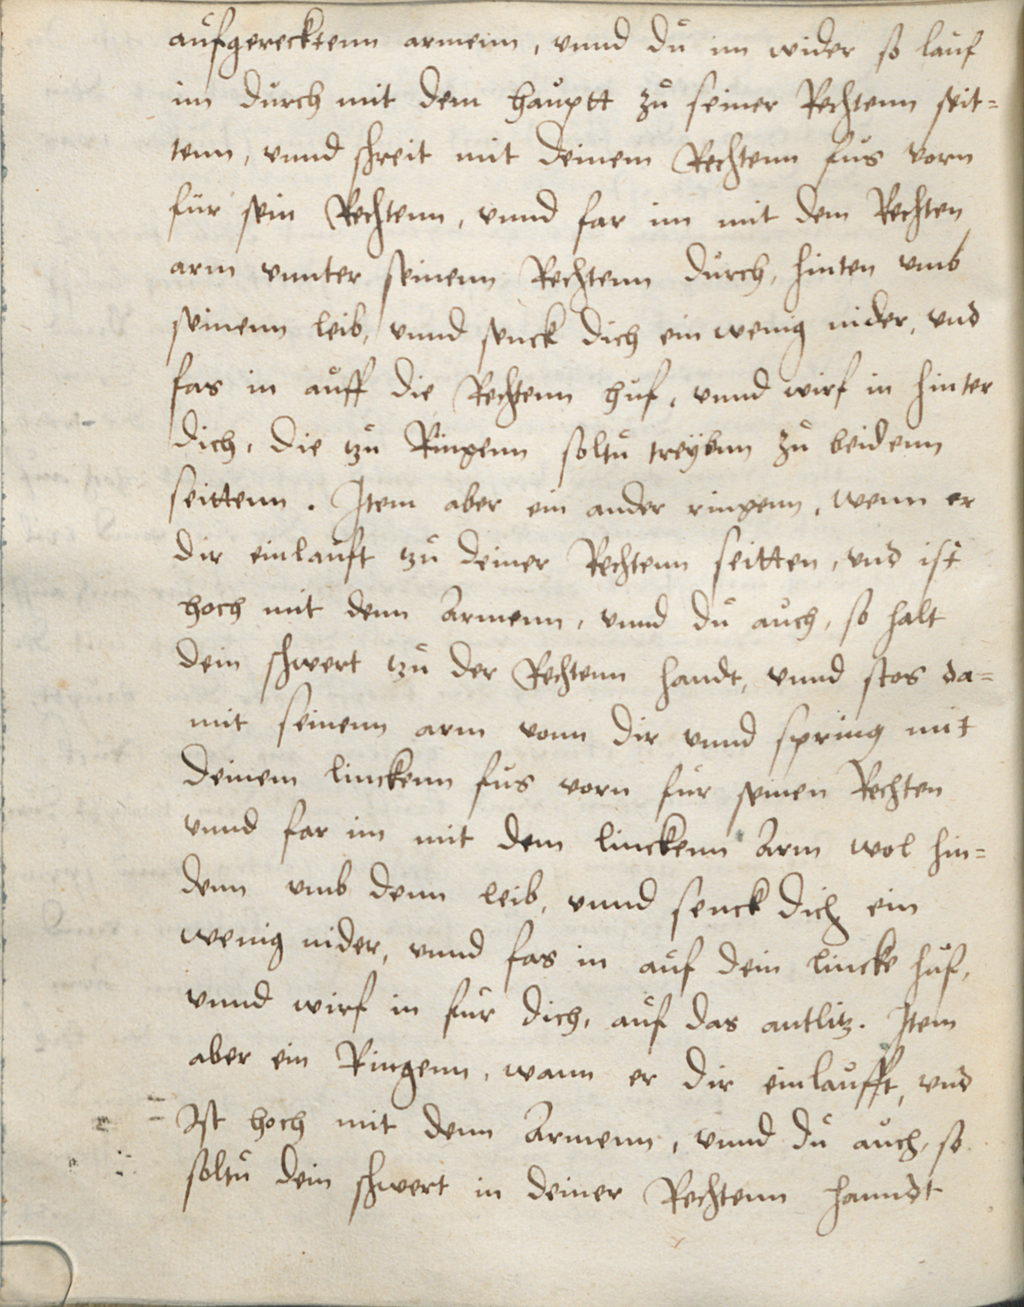 aufgerecktenn armenn, vnnd du im wider so lauf
im durch mit dem hauptt zu seiner Rechtenn seit=
tenn, vnnd schreit mit deinem Rechtenn fus vorn
für sein Rechtenn, vnnd far im mit dem Rechten
arm vnnter seinenn Rechtenn durch, hinten vmb
seinenn leib, vnnd senck dich ein wenig nider, vnd
fas in auff die Rechtenn huf, vnnd wirf in hinter
dich, die zu Ringenn soltu treybnn zu beidenn
seittenn. Item aber ein ander ringenn, wenn er
dir einlauft zu deiner Rechtenn seitten, vnd ist
hoch mit denn Armenn, vnnd du auch, so halt
dein schwert zu der Rechtenn handt, vnnd stos da=
mit seinenn arm vonn dir vnnd spring mit
deinem linckenn fus vorn fur seinen Rechten
vnnd far im mit dem linckenn Arm wol hin=
denn vmb denn leib, vnnd senck dich ein
wenig nider, vnnd fas in auf dein lincke huf,
vnnd wirf in fur dich, auf das antlitz. Item
aber ein Ringenn, wann er dir einlaufft, vnd
Ist hoch mit denn Armenn, vnnd du auch, so
soltu dein schwert in deiner Rechtenn hanndt